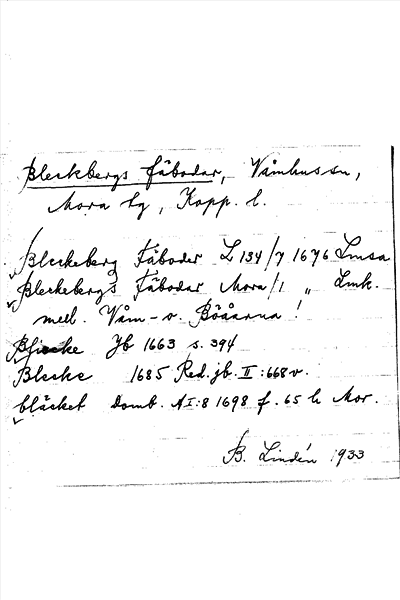 Bleckbergs fäbodar, Våmhus sn,
Mora tg, Kopp. l.
Bleckeberg Fäboder L 134/7 1676 Lmsa
Bleckebergs Fäbodar Mora/1 " Lmk.
mell. Våm- o. Böåarna!
Blecke Jb 1663 s. 394
Blecke 1685 Red. jb. II:668 v.
bläcket Domb. AI:8 1698 f. 65 h Mor.
B. Lindén 1933